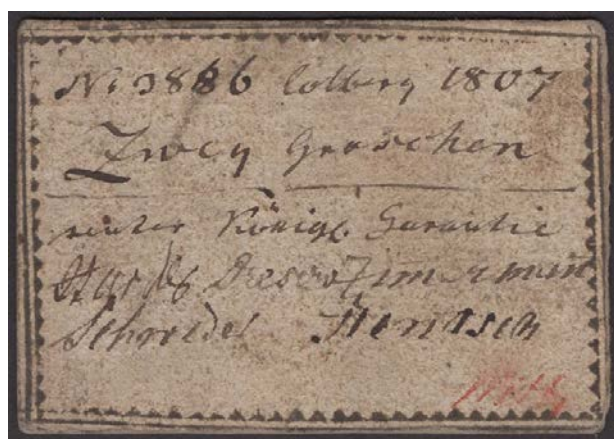 No 3886 Colberg 1807
Zwey Groschen
unter Königl. Garantie
Zimmermann
Schroeder Hentsch